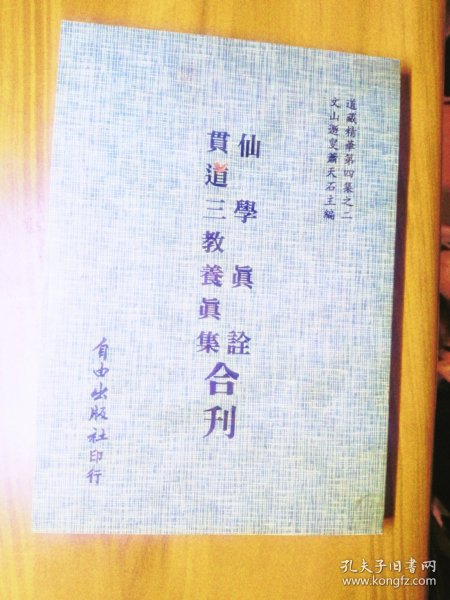 道藏精華第四集之二
文山遯叟蕭天石主編
仙學眞詮
貫道三教養眞集
合刊
自由出版社印行
孔夫子旧书网
www.kongfz.com